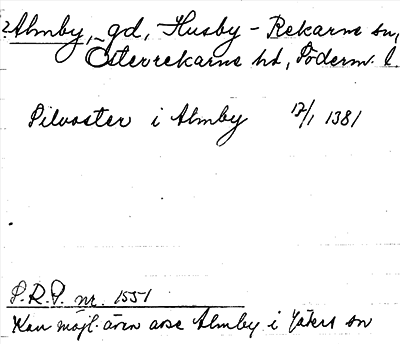 ? Almby, gd, Husby-Rekarne sn,
Österrekarne hd, Söderm. l.
Silvaster i Almby 17/1 1381
S.R.P. nr. 1551
Kan möjl. även avse Almby i Jäders sn